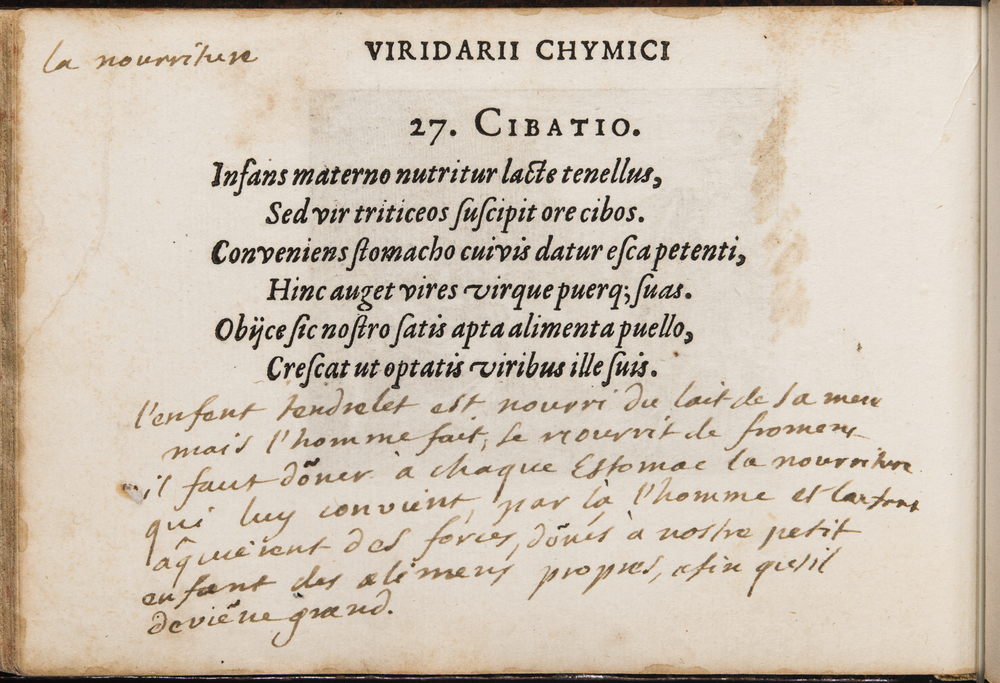 la nourriture
VIRIDARII CHYMICI
27. CIBATIO.
Infans materno nutritur lacte tenellus,
Sed vir triticeos ſuſcipit ore cibos.
Conveniens ſtomacho cuivis datur eſca petenti,
Hinc auget vires virque puerq; ſuas.
Obijce ſic noſtro ſatis apta alimenta puello,
Creſcat ut optatis viribus ille ſuis.
l'enfent tendrelet est nourri du lait de sa mere
mais l'homme fait, se nourrit de fromens
il faut dõner à chaque Estomac la nourriture
qui luy convient, par là l'homme et
aquierent des forces, dõnés à nostre petit
enfant des alimens propres, afin qu'il
deviẽne grand.